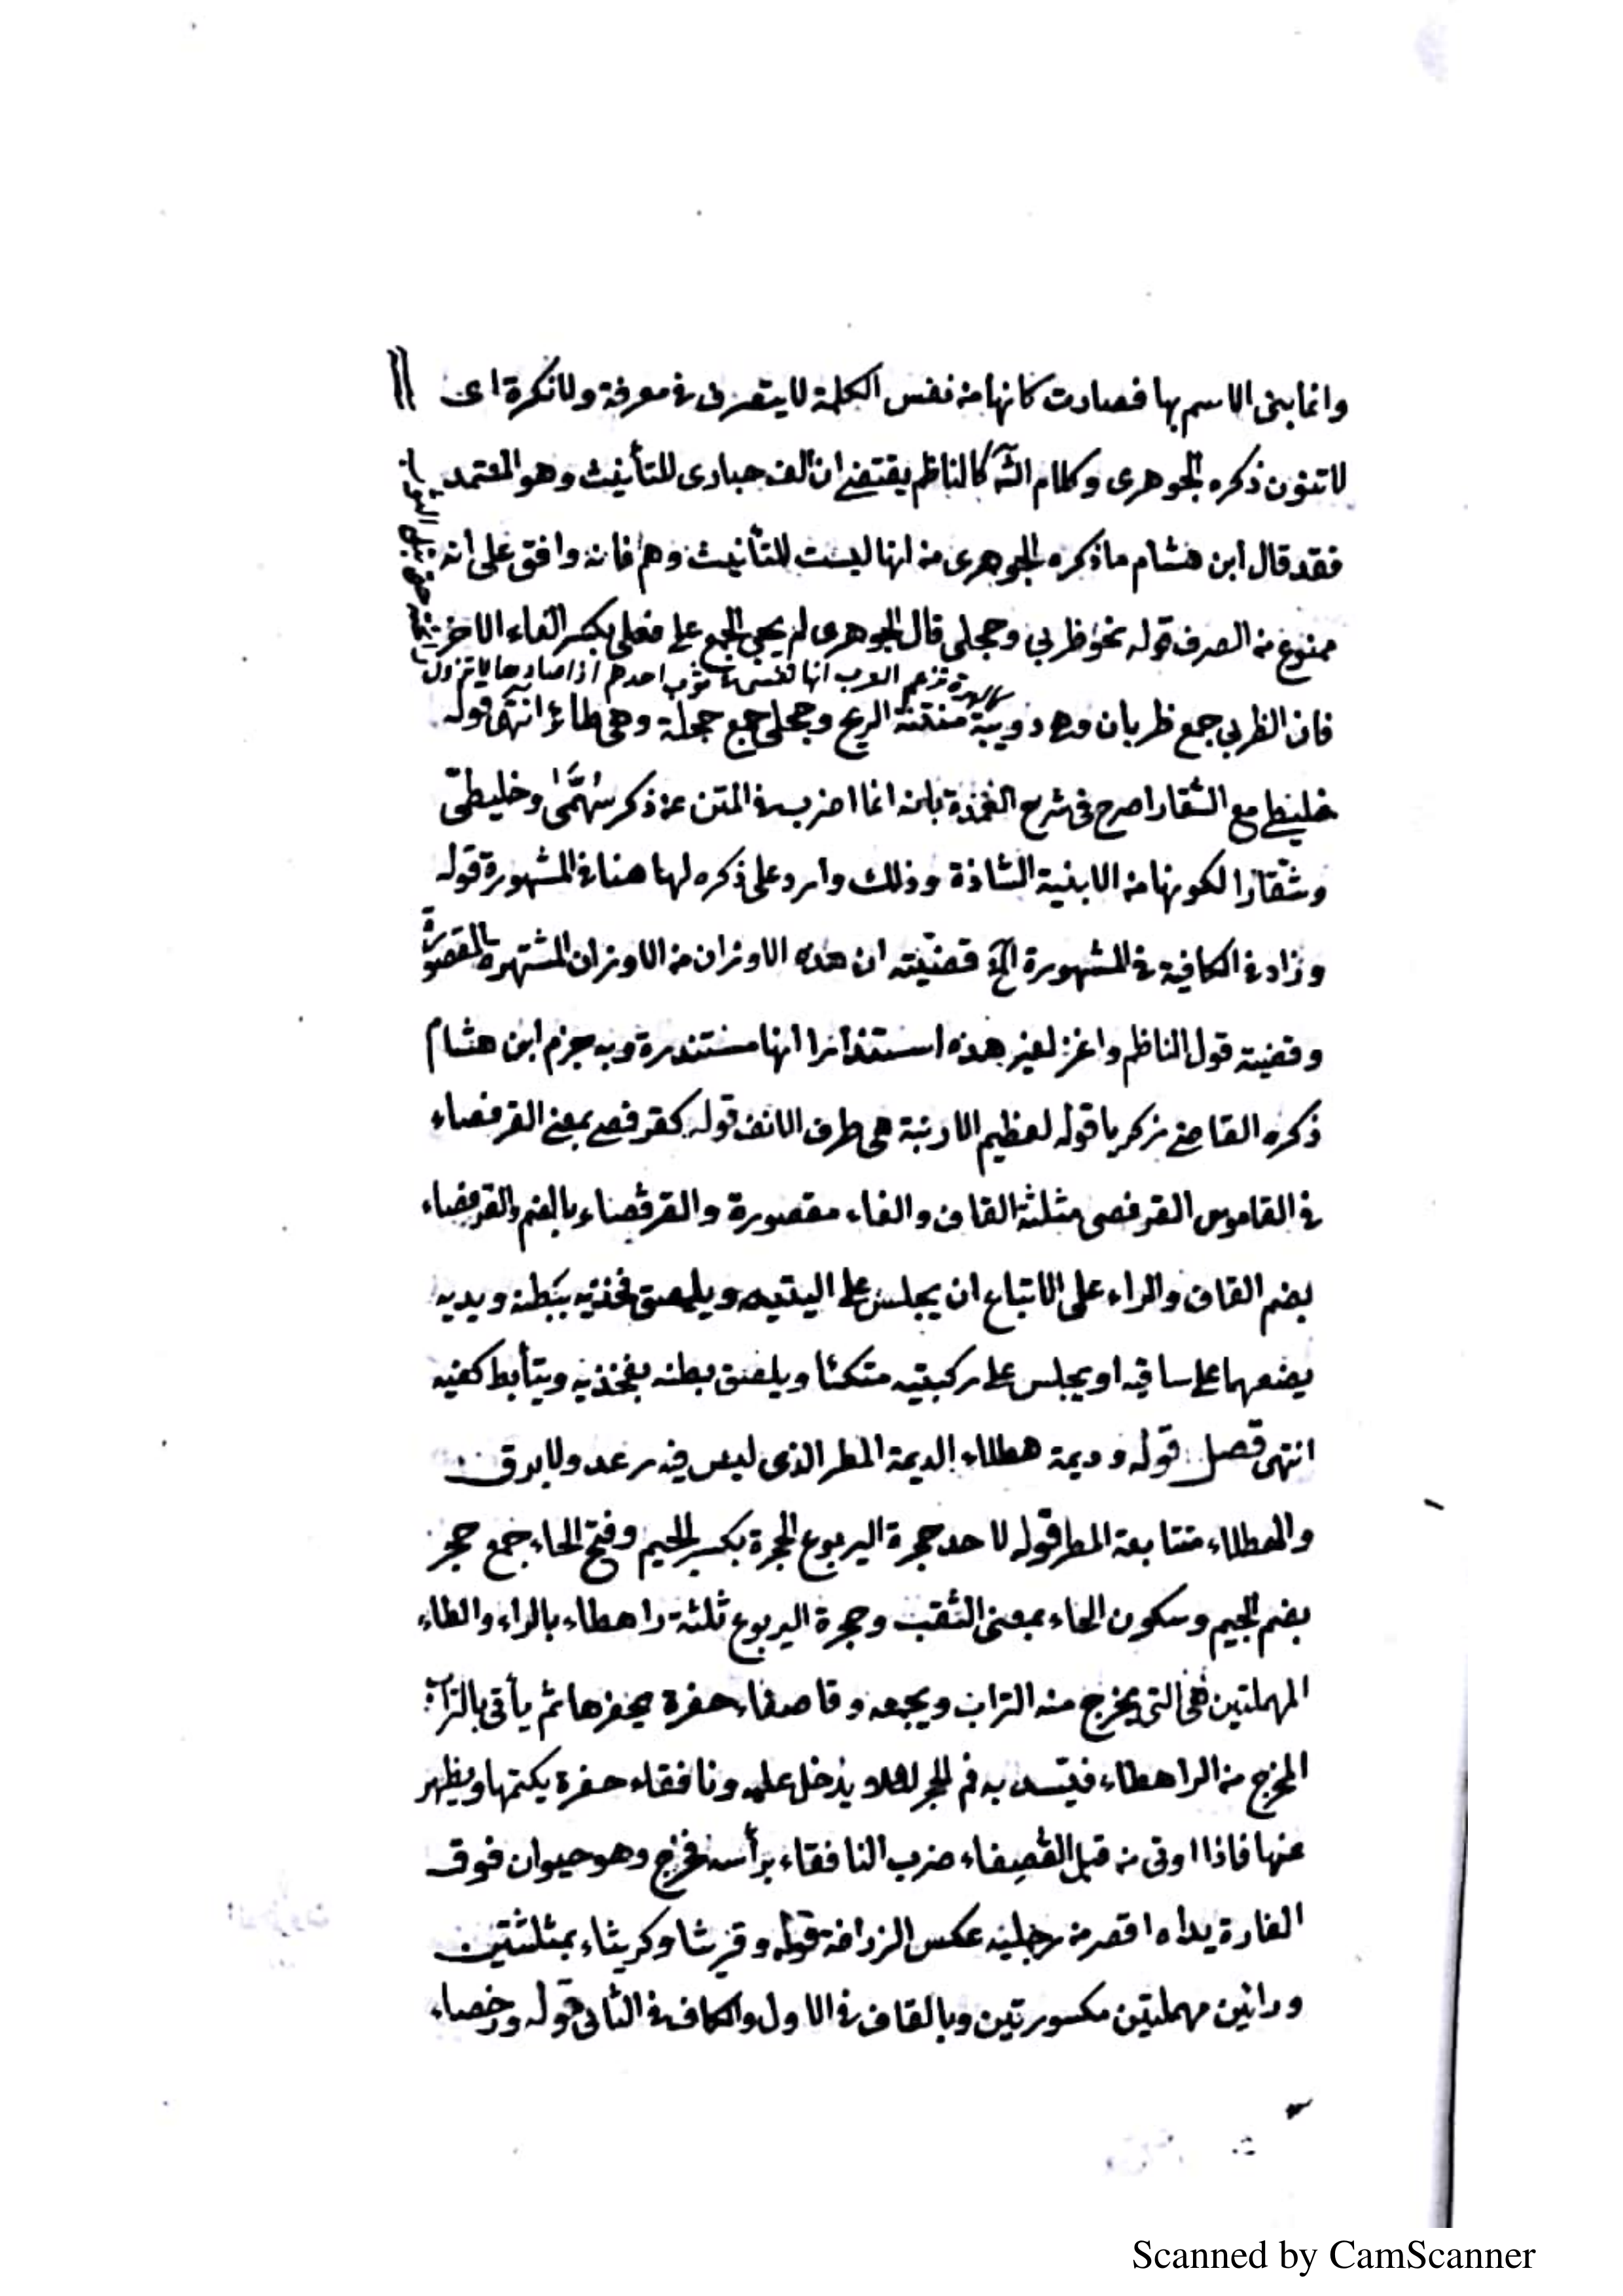 وانما بنى الاسم بها فصارت كانها من نفس الكلمة لا يتصرف في معرفة ولا نكرة اى
لا تنون ذكره الجوهرى وكلام الش كالناظم يقتضى ان الف حبارى للتأنيث وهو المعتمد
فقد قال ابن هشام ما ذكره الجوهرى من انها ليست للتأنيث وهم فانه وافق على انه
ممنوع من الصرف قوله نحو ظربى وحجلى قال الجوهرى لم يجى الجمع على فعلى بكسر الفاء الا
تزعم العرب انها تفسو في ثوب احدهم اذا صادها فلا تزول
فان الظربى جمع ظربان وهو دويبة منتنة الريح وحجلى جمع حجلة وهى طائر انتهى قوله
خليطى مع الشقارا صرح فى شرح العمدة بانه انما اضرب في المتن عن ذكر سُمَّهى وخليطى
وشقارا لكونها من الابنية الشاذة وذلك وارد على ذكره لها هنا في المشهورة قوله
وزاد في الكافية في المشهورة الخ قضيته ان هذه الاوزان من الاوزان المشتهرة المقصورة
وقضية قول الناظم واعز لغير هذه استندارا انها مستندرة وبه جزم ابن هشام
ذكره القاضى زكريا قوله لعظيم الارنبة هى طرف الانف قوله كقرفصى بمعنى القرفصاء
في القاموس القرفصى مثلثة القاف والفاء مقصورة والقرفصاء بالضم والقرفصاء
بضم القاف والراء على الاتباع ان يجلس على اليتيه ويلصق فخذيه ببطنه ويديه
يضعهما على ساقيه او يجلس على ركبتيه متكئا ويلصق بطنه بفخذيه ويتأبط كفيه
انتهى فصل قوله وديمة هطلاء الديمة المطر الذى ليس فيه رعد ولا برق
والهطلاء متتابعة المطر قوله لاحد جحرة اليربوع الجحرة بكسر الجيم وفتح الحاء جمع جحر
بضم الجيم وسكون الحاء بمعنى الثقب وجحرة اليربوع ثلثة راهطاء بالراء والطاء
المهملتين هى التى يخرج منه التراب ويجمعه وقاصعاء حفرة يحفرها ثم يأتى بالتراب
المخرج من الراهطاء فيسد به فم الجحر لئلا يدخل عليه ونافقاء حفرة يكتمها ويظهر
غيرها فاذا اوتى من قبل القصيعاء ضرب النافقاء برأسه فخرج وهو حيوان فوق
الفارة يداه اقصر من رجليه عكس الزرافة قوله وقريثا وكريثاء بمثلثتين
ورائين مهملتين مكسورتين وبالقاف في الاول والكاف في الثانى قوله ورخصاء
Scanned by CamScanner